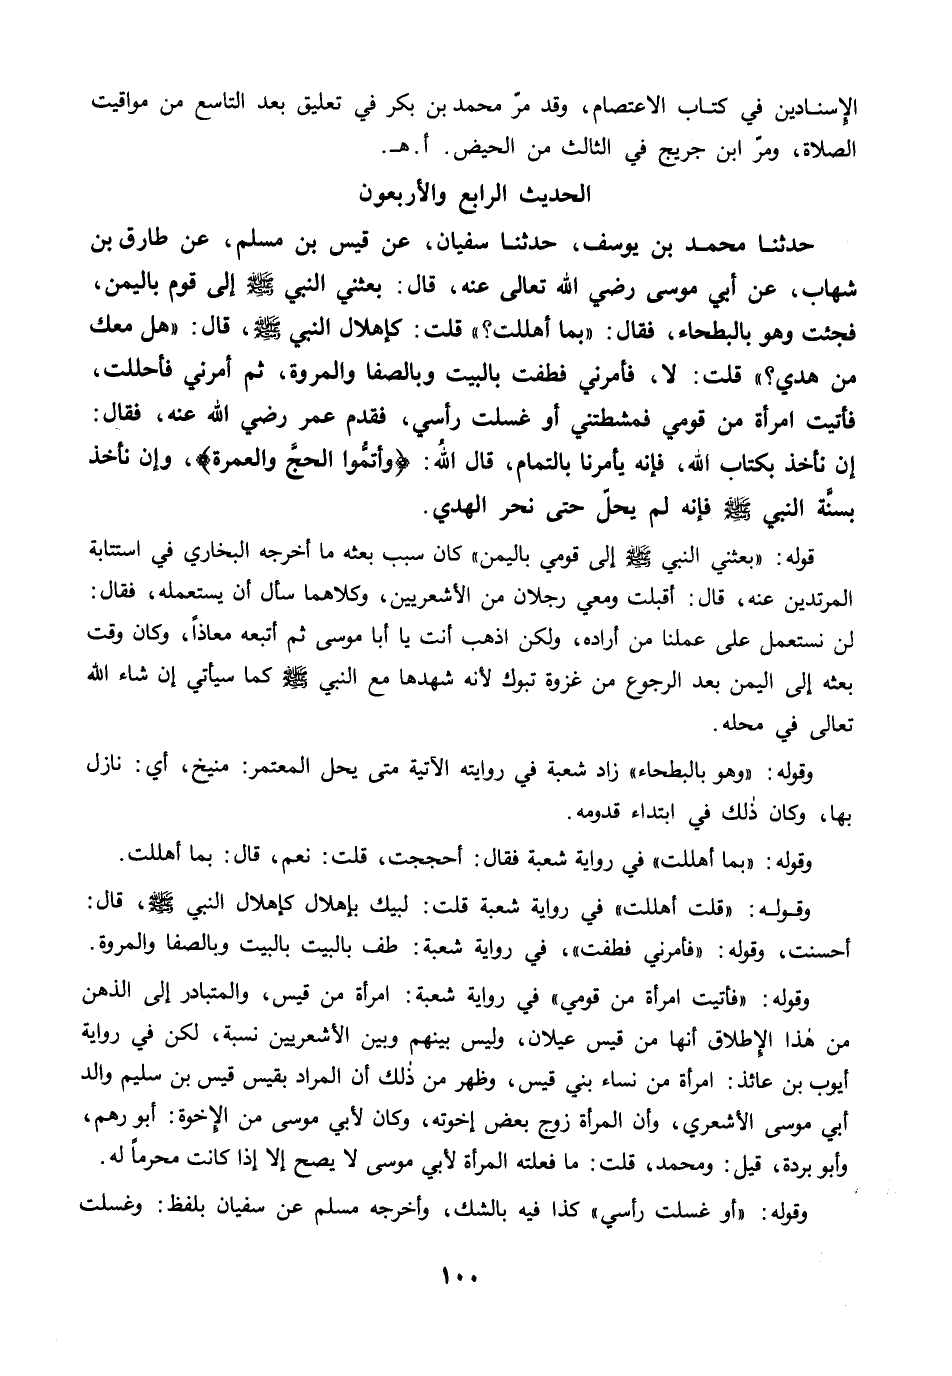 الإسنادين في كتاب الاعتصام، وقد مرّ محمد بن بكر في تعليق بعد التاسع من مواقيت
الصلاة، ومرّ ابن جريج في الثالث من الحيض. أ. هـ.
الحديث الرابع والأربعون
حدثنا محمد بن يوسف، حدثنا سفيان، عن قيس بن مسلم، عن طارق بن
شهاب، عن أبي موسى رضي الله تعالى عنه، قال: بعثني النبي ﷺ إلى قوم باليمن،
فجئت وهو بالبطحاء، فقال: «بما أهللت؟» قلت: كإهلال النبي ﷺ، قال: «هل معك
من هدي؟» قلت: لا، فأمرني فطفت بالبيت وبالصفا والمروة، ثم أمرني فأحللت،
فأتيت امرأة من قومي فمشطتني أو غسلت رأسي، فقدم عمر رضي الله عنه، فقال:
إن نأخذ بكتاب الله، فإنه يأمرنا بالتمام، قال اللهُ: ﴿وأتمُّوا الحجَّ والعمرة﴾، وإن نأخذ
بسنَّة النبي ﷺ فإنه لم يحلّ حتى نحر الهدي.
قوله: «بعثني النبي ﷺ إلى قومي باليمن» كان سبب بعثه ما أخرجه البخاري في استتابة
المرتدين عنه، قال: أقبلت ومعي رجلان من الأشعريين، وكلاهما سأل أن يستعمله، فقال:
لن نستعمل على عملنا من أراده، ولكن اذهب أنت يا أبا موسى ثم أتبعه معاذاً، وكان وقت
بعثه إلى اليمن بعد الرجوع من غزوة تبوك لأنه شهدها مع النبي ﷺ كما سيأتي إن شاء الله
تعالى في محله.
وقوله: «وهو بالبطحاء» زاد شعبة في روايته الآتية متى يحل المعتمر: منيخ، أي: نازل
بها، وكان ذٰلك في ابتداء قدومه.
وقوله: «بما أهللت» في رواية شعبة فقال: أحججت، قلت: نعم، قال: بما أهللت.
وقوله: «قلت أهللت» في رواية شعبة قلت: لبيك بإهلال كإهلال النبي ﷺ، قال:
أحسنت، وقوله: «فأمرني فطفت»، في رواية شعبة: طف بالبيت بالبيت وبالصفا والمروة.
وقوله: «فأتيت امرأة من قومي» في رواية شعبة: امرأة من قيس، والمتبادر إلى الذهن
من هٰذا الإطلاق أنها من قيس عيلان، وليس بينهم وبين الأشعريين نسبة، لكن في رواية
أيوب بن عائذ: امرأة من نساء بني قيس، وظهر من ذٰلك أن المراد بقيس قيس بن سليم والد
أبي موسى الأشعري، وأن المرأة زوج بعض إخوته، وكان لأبي موسى من الإخوة: أبو رهم،
وأبو بردة، قيل: ومحمد، قلت: ما فعلته المرأة لأبي موسى لا يصح إلا إذا كانت محرماً له.
وقوله: «أو غسلت رأسي» كذا فيه بالشك، وأخرجه مسلم عن سفيان بلفظ: وغسلت
١٠٠